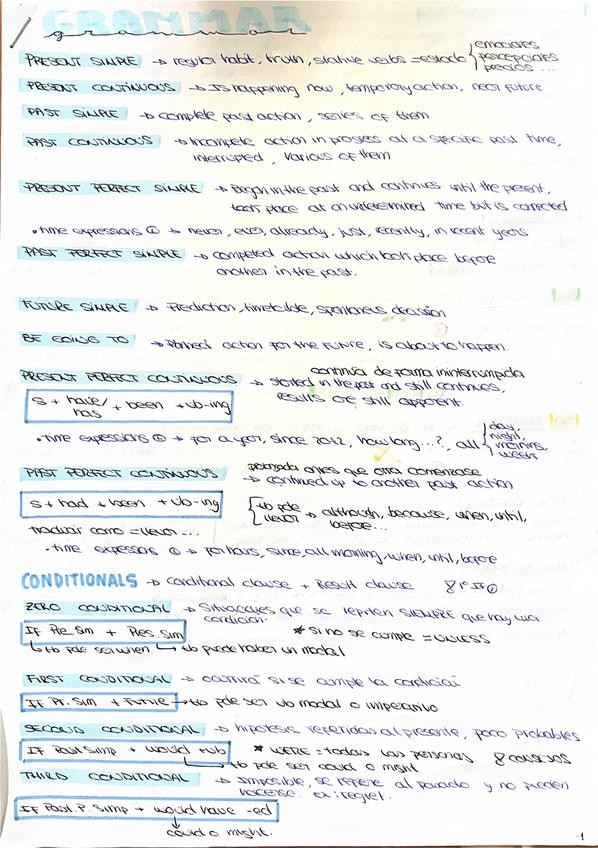 GRAMMAR
grammar
PRESENT SIMPLE → regular habit, truth, stative verbs = estado { emociones
percepciones
precios ...
PRESENT CONTINUOUS → Is happening now, temporary action, near future
PAST SIMPLE → complete past action, series of them
PAST CONTINUOUS → Incomplete action in progress at a specific past time,
interrupted, various of them
PRESENT PERFECT SIMPLE → Began in the past and continues until the present,
took place at an undetermined time but is connected
• time expressions → never, ever, already, just, recently, in recent years
PAST PERFECT SIMPLE → completed action which took place before
another in the past.
FUTURE SIMPLE → Prediction, timetable, spontaneous decision
BE GOING TO → Planned action for the future, is about to happen.
continua de forma ininterrumpida
PRESENT PERFECT CONTINUOUS → started in the past and still continues,
results are still apparent.
S + have/has + been + vb-ing
• Time expressions → for a year, since 2012, how long...?, all { day,
night,
morning,
week
antes que otra comenzase
PAST PERFECT CONTINUOUS → continued up to another past action
S + had + been + vb-ing
[ tb pde
llevar → although, because, when, until,
before...
traducir como = llevar...
• time expressions → for hours, since, all morning, when, until, before
CONDITIONALS → conditional clause + Result clause 8 1º IF
ZERO CONDITIONAL → Situaciones que se repiten SIEMPRE que hay una
condición.
IF Pre. Sim + Pres. Sim * si no se cumple = UNLESS
↳ tb pde ser when ↳ tb puede haber un modal
FIRST CONDITIONAL → ocurrirá si se cumple la condición
IF Pr. Sim + Future → tb pde ser vb modal o imperativo
SECOND CONDITIONAL → hipótesis referidas al presente, poco probables
IF Past Simp + would + vb * WERE = todas las personas 8 consejos
↳ tb pde ser could o might
THIRD CONDITIONAL → Imposible, se refiere al pasado y no pueden
hacerse. ex: regret.
IF Past. P. Simp + would have -ed
↓
could o might.
1